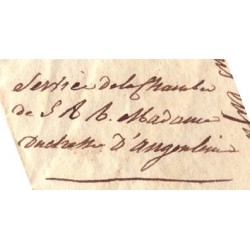 Service de la Chambre
de S A R Madame
Duchesse D'angoulême